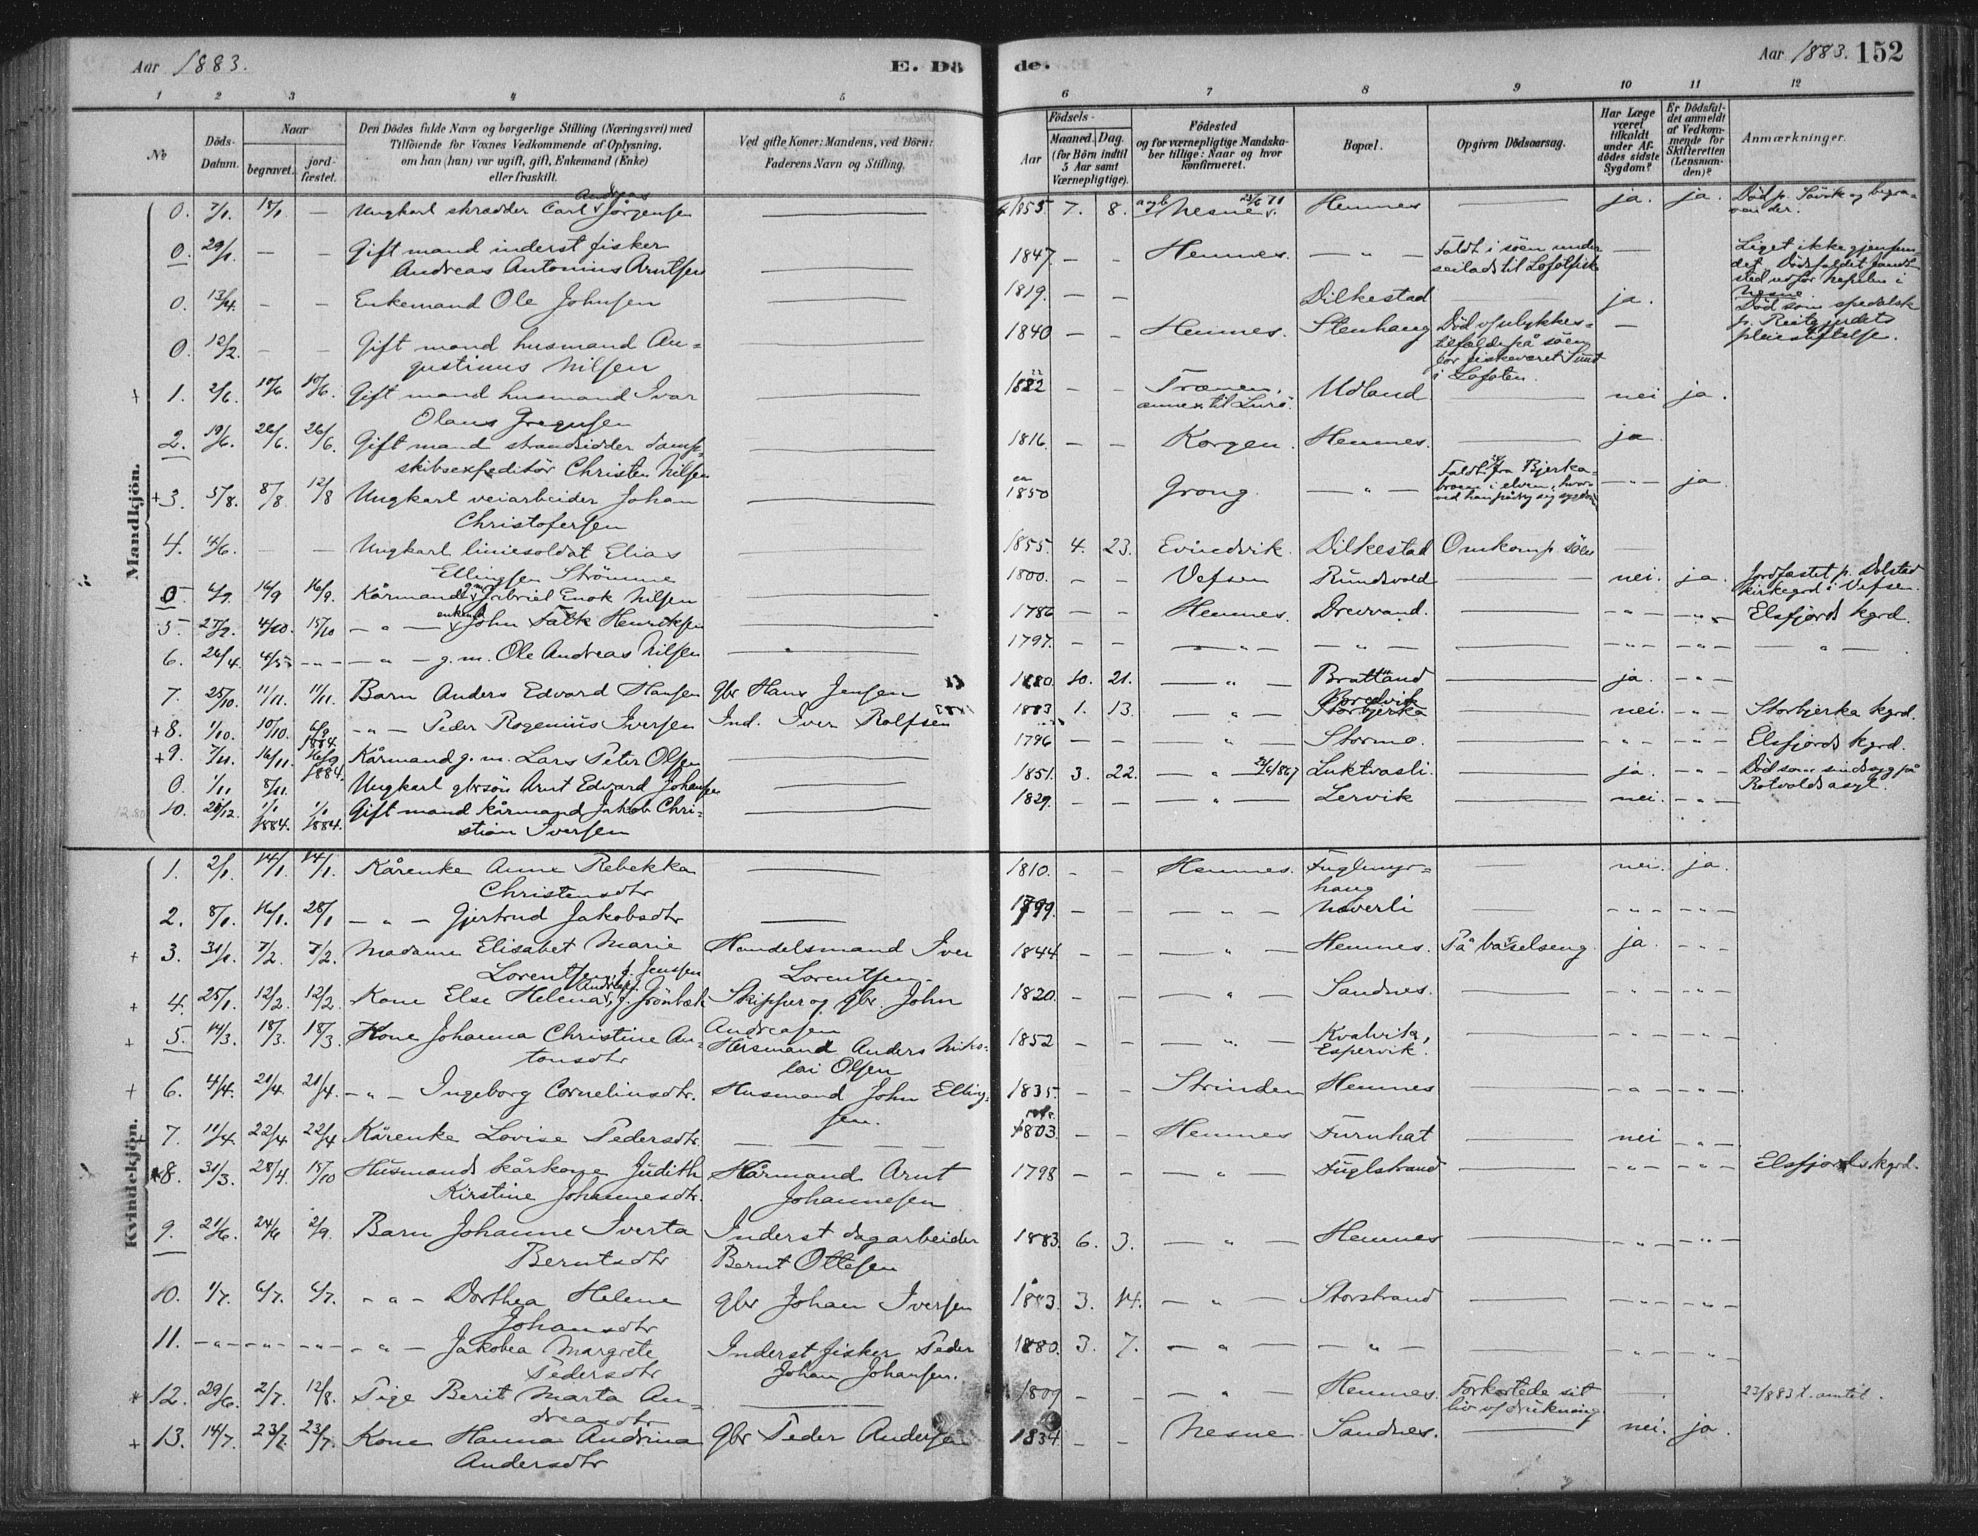 Aar 1883. E. Dö
de. Aar 1883. 152
1 2 3 4 5
6 7 8 9 10 11 12
No
Döds-Datum.
Naar
begravet. jordfæstet.
Den Dödes fulde Navn og borgerlige Stilling (Næringsvei) med
Tilföiende for Voxnes Vedkommende af Oplysning,
om han (hun) var ugift, gift, Enkemand (Enke)
eller fraskilt.
Ved gifte Koner: Mandens, ved Börn:
Faderens Navn og Stilling.
Födsels-
Aar Maaned. Dag.
(for Börn indtil
5 Aar samt
Værnepligtige).
Födested
og for værnepligtige Mandska-
ber tillige: Naar og hvor
konfirmeret.
Bopæl.
Opgiven Dödsaarsag.
Har Læge
været
tilkaldt
under Af-
dödes sidste
Sygdom?
Er Dödsfal-
det anmeldt
af Vedkom-
mende for
Skifteretten
(Lensman-
den)?
Anmærkninger.
Mandkjön.
0. 7/1. 18/1 — Ungkarl skrædder Carl Andreas Jörgensen — 1855 7. 8. Nesne Hemnes ja. ja. Död p. Sövik og begra-
ven der.
0. 29/1. — — Gift mand inderst fisker
Andreas Antonius Arntsen — 1847 — — Hemnes. — " — Faldt i söen under
seilads til Lofotfisk — Liget ikke gjenfun
det. Dödsfaldet fandt
sted udfor
Nesne.
0. 13/4. — — Enkemand Ole Johnsen — 1819. — — Dilkestad — ja. Död som spedalsk
p. Reitgjerdets
pleiestiftelse.
0. 12/2. — — Gift mand husmand Au-
gustinus Nilsen 1840 — Hemnes. Stenhaug Död v/ulykkes-
tilfælde på söen
for fiskeværet Sund
i Lofoten. —
+ 1. 2/6. 10/6 10/6. Gift mand husmand Ivar
Olaus Gregusen — 1822 — — Trænen,
annex til Lurö. Udland — nei ja.
2. 19/6. 26/6. 26/6. Gift mand strandsidder damp-
skibsexpeditör Christen Nilsen 1816 — — Korgen. Hemnes. — ja.
+3. 5/8. 8/8 12/8 Ungkarl veiarbeider Johan
Christofersen — 1850 Grong. — " — Faldt fra Bjerka-
broen i elven, hvor-
ved han pådrog sig — " — ja.
4. 4/6. — — Ungkarl liniesoldat Elias
Ellingsen Strömme 1855. 4. 23. Evindvik. Dilkestad Omkom p. söen —
0. 4/9. 16/9 16/9. Kårmand g.m. Gabriel Enok Nilsen — 1800. — — Vefsen Rundvold — nei. ja. Jordfæstet p. Dolstad
kirkegrd i Vefsen.
5. 27/9. 4/10. 15/10 — " — enkemd John Falk Henriksen — 1786 — — Hemnes. Drevvand. — " — " — Elsfjords kgrd.
6. 26/4. 4/5 — " — — " — g.m. Ole Andreas Nilsen — 1797. — — — " — — " — — " — — " — — " —
7. 25/10. 11/11. 11/11. Barn Anders Edvard Hansen gbr Hans Jensen 1880. 10. 21. — " — Brattland ja. — " —
+8. 1/10. 10/10. 6/9 1884. — " — Peder Rogenius Iversen Ind. Iver Rolfsen 1883 1. 13. — " — Bredvik
Storbjerka — nei. — " — Storbjerka kgrd.
+9. 7/11. 16/11. 16/9 1884. Kårmand g.m. Lars Peter Olsen 1796 — — — " — Stormo. — " — — " — Elsfjords kgrd.
0. 1/11 8/11. Ungkarl gbrsön Arnt Edvard Johansen — 1851. 3. 22. — " — Luktvasli. — ja. — " — Död som sindssyg på
Rotvolds asyl.
10. 28/12. 1/1 1884. 1/1 1884. Gift mand kårmand Jakob Chri-
stian Iversen — 1829. — — — " — Lervik — nei. — " —
Kvindekjön.
1. 2/1. 14/1. 14/1. Kårenke Anne Rebekka
Christensdtr — 1810. — — Hemnes. Fuglmyr-
haug — nei. ja.
2. 8/1. 16/1. 28/1 — " — Gjertrud Jakobsdtr — 1799. — — — " — Neverli — " — — " —
+ 3. 31/1. 7/2. 7/2. Madame Elisabet Marie
Lorentsen, f. Jenssen Handelsmand Iver
Lorentsen 1844 — — — " — Hemnes. På barselseng. ja. — " —
+ 4. 25/1. 12/2. 12/2. Kone Else Helena Andreas. f. Grönbæk Skipper og gbr. John
Andreasen 1820. — — — " — Sandnes. — " — — " —
+ 5. 14/3. 18/3. 18/3. Kone Johanna Christine An-
tonsdtr Husmand Anders Niko-
lai Olsen 1852 — — — " — Kvalvika,
Espervik. — " — — " —
+ 6. 4/4. 21/4. 21/4. — " — Ingeborg Corneliusdtr. Husmand John Elling-
sen. 1835. — Strinden Hemnes — " — — " —
+ 7. 11/4. 22/4 22/4 Kårenke Lovise Pedersdtr. — 1803. — — Hemnes Furuhat — nei — " —
*8. 31/3. 28/4. 15/10 Husmands kårkone Judith
Kirstine Johannesdtr. Kårmand Arnt
Johannesen 1798 — — " — Fuglstrand — " — — " — Elsfjords kgrd.
9. 21/6. 24/6 2/9. Barn Johanne Iverta
Berntsdtr Inderst dagarbeider
Bernt Ottesen 1883. 6. 3. — " — Hemnes — " — — " —
10. 1/7. 6/7. 6/7. — " — Dorthea Helene
Johansdtr gbr Johan Iversen 1883. 3. 14. — " — Storstrand — " — — " —
11. — " — — " — — " — — " — Jakobea Margrete
Pedersdtr Inderst fisker Peder
Johan Johansen. 1880. 3. 7. — " — — " — — " — — " —
* 12. 29/6. 2/7. 12/8. Pige Berit Marta An-
dreasdtr — 1809 — " — Hemnes. Forkortede sit
liv v/drukning — 23/8 83 t. amtet.
+ 13. 14/7. 23/7. 23/7. Kone Hanna Andrina
Andersdtr gbr Peder Andersen 1834 — — Nesne Sandnes. — nei. ja.